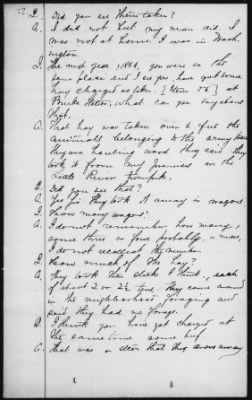 Q. Did you see them taken?
A. I did not but my man did. I
was not at home. I was in Wash-
ington.
Q. The next year, 1864, you were on the
same place and I see you have got some
hay charged as taken, [Item 26] at
Burke Station, what can you say about
that.
A. That hay was taken over to feed the
animals belonging to the army teams
they are hauling wood they said they
took it from my premises on the
Little River Turnpike.
Q. Did you see that?
A. Yes sir they took it away in wagons.
Q. How many wagons?
A. I do not remember how many,
some three or four probably,
I do not recollect the number.
Q. How much of the hay?
A. They took two stacks I think, each
of about 2 or 2½ tons. They came around
in the neighborhood foraging and
said they had no forage.
Q. I think you have got charged at
the same time some beef.
A. That was a steer that they drove away